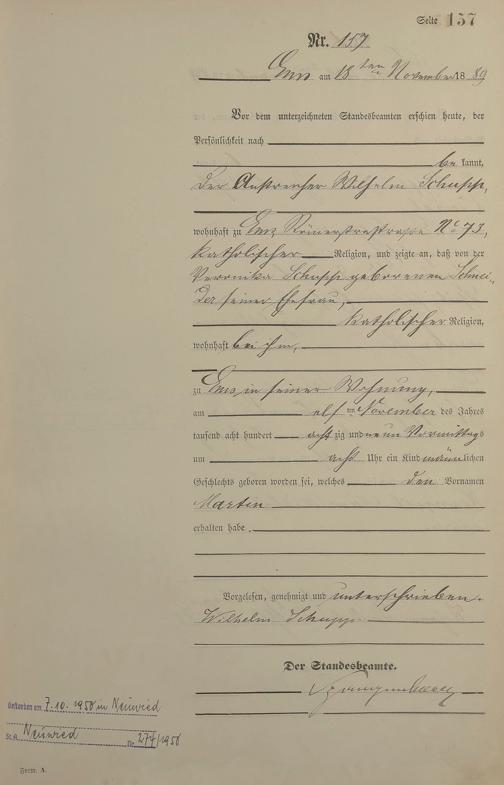 Seite 157
Nr. 157
Ems am 18ten November 1889
Vor dem unterzeichneten Standesbeamten erschien heute, der
Persönlichkeit nach
bekannt,
der Anstreicher Wilhelm Schupp,
wohnhaft zu Ems Römerstraße No 73,
katholischer Religion, und zeigte an, daß von der
Veronika Schupp geborenen Schnei-
der seiner Ehefrau,
katholischer Religion,
wohnhaft bei ihm,
zu Ems in seiner Wohnung,
am elften November des Jahres
tausend acht hundert achtzig und neun Vormittags
um acht Uhr ein Kind männlichen
Geschlechts geboren worden sei, welches den Vornamen
Martin
erhalten habe.
Vorgelesen, genehmigt und unterschrieben.
Wilhelm Schupp
Der Standesbeamte.
Gestorben am 7.10.1950 in Neuwied
St.A. Neuwied Nr. 274/1950
Form. A.